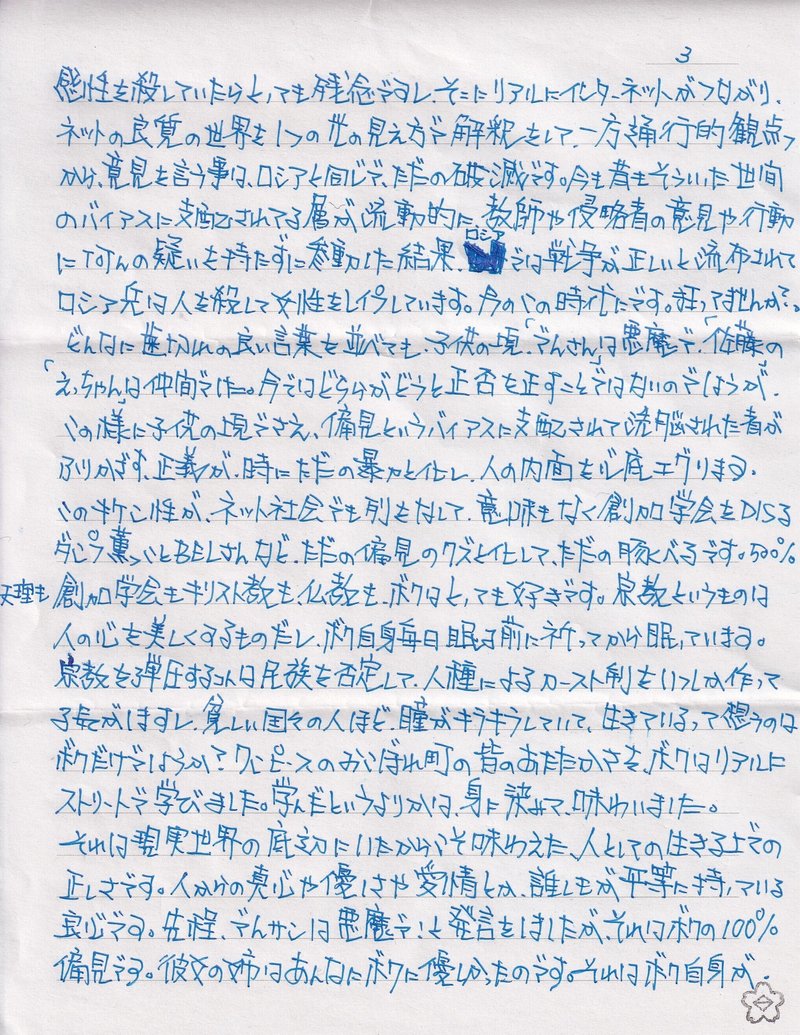 3
感性を殺していたらとっても残念ですし、そこにリアルにインターネットがつながり、
ネットの良質の世界を1つの世の見え方で解釈をして、一方通行的観点っ
から、意見を言う事は、ロシアと同じで、ただの破滅です。今も昔もそういった世間
のバイアスに支配されてる層が流動的に、教師や侵略者の意見や行動
ロシア
に何んの疑いも持たずに参動した結果、では戦争が正しいと流布されて
ロシア兵は人を殺して女性をレイプしています。今のこの時代にです。狂ってませんか?。
どんなに歯切れの良い言葉を並べても、子供の頃、「でんさん」は悪魔で、「佐藤の
えっちゃん」は仲間でした。今ではどちらがどうと正否を正すこそではないのでしょうが、
この様に子供の頃でさえ、偏見というバイアスに支配されて洗脳された者が
ふりかざす、正義が、時にただの暴力と化し、人の内面を心底エグります。
このキケン性が、ネット社会でも列をなして、意味もなく創加学会をDISる
ダピラ薫っことBELさんなど、ただの偏見のクズと化して、ただの豚くべるです。500%
天理も
創加学会もキリスト教も、仏教も、ボクはとっても好きです。宗教というものは
人の心を美しくするものだし、ボク自身毎日眠る前に祈ってから眠っています。
宗教を弾圧するコトは民族を否定して、人種によるカースト制をいつしか作って
子長がしますし、貧しい国々の人ほど、瞳がキラキラしていて、生きているって想うのは
ボクだけでしょうか?ワンピースのおこぼれ町の皆のあたたかさを、ボクはリアルに
ストリートで学びました。学んだというよりかは、身に染みて、味わいました。
それは現実世界の底辺にいたからこそ味わえた、人としての生きる上での
正しさです。人からの真心や優しさや愛情とか、誰しもが平等に持っている
良心です。先程、でんサンは悪魔で!と発言をしましたが、それはボクの100%
偏見です。彼女の姉はあんなにボクに優しかったのです。それはボク自身が、